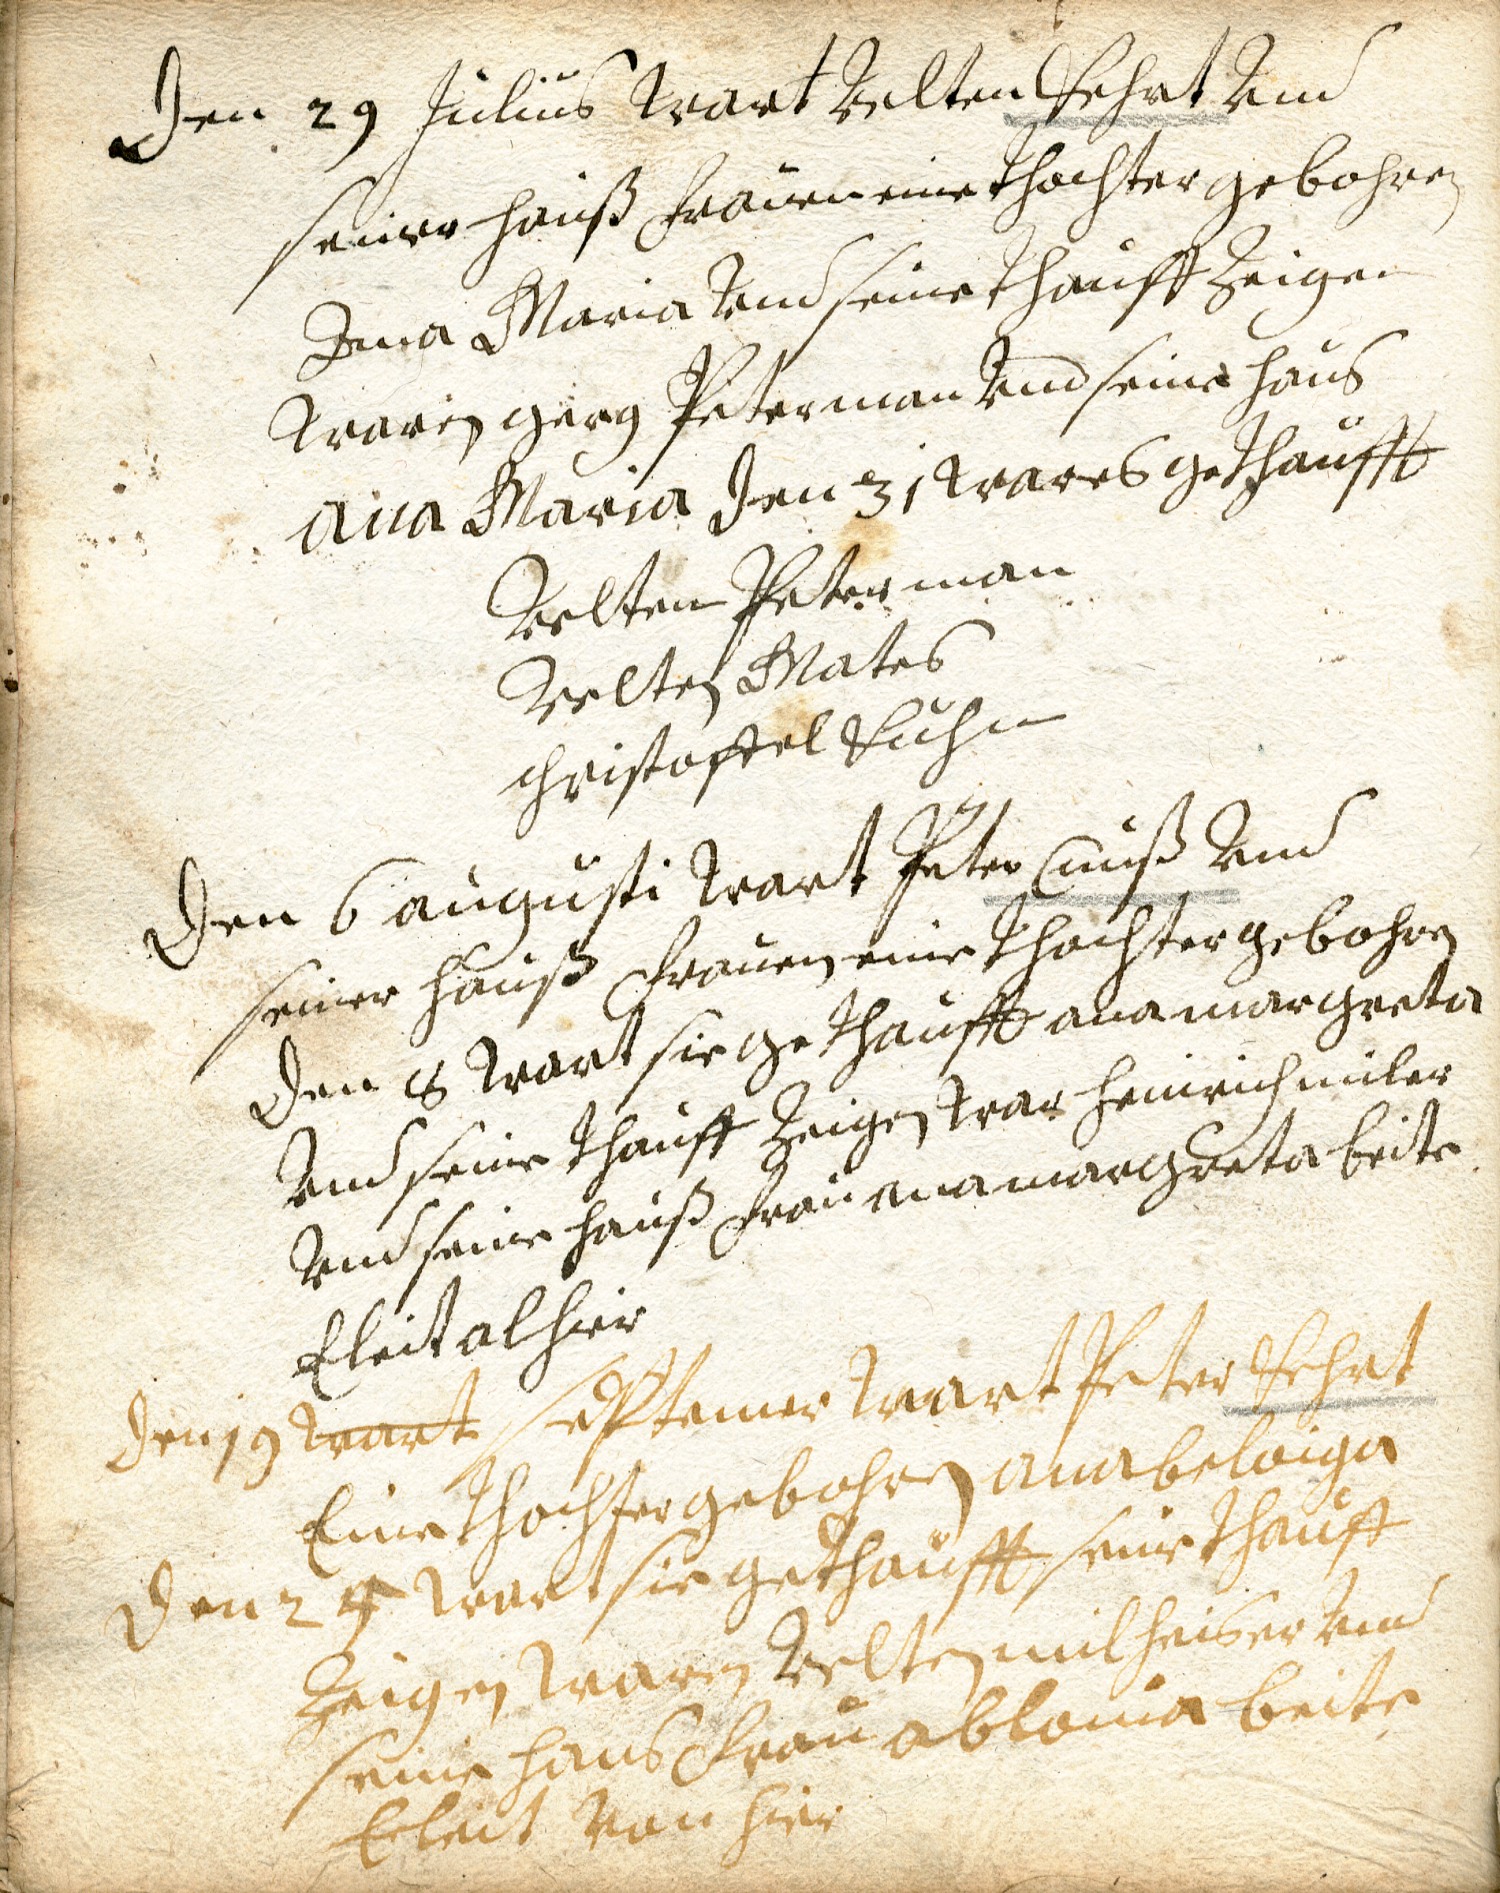 Den 29 Julius wart Velten Sehrt Vnd
seiner hauß frauen eine thochter gebohren
Ana Maria Vnd seine thauff Zeigen
waren gerg Peterman Vnd seine haus
ana Maria Den 31 war es gethaufft
Velten Peterman
Velten Mates
christoffel Kuhn
Den 6 augusti wart Peter Cunß Vnd
seiner hauß frauen eine thochter gebohren
Den 8 wart sie gethaufft ana margreta
Vnd seine thauff Zeigen war heinrich miler
Vnd seine hauß frau ana margreta beite
Eleit alhier
Den 19 wart septemer wart Peter Sehrt
Eine thochter gebohren ana beloiga
Den 24 wart sie gethaufft seine thauff
Zeigen waren Velten milheiser Vnd
seine haus frau ablonia beite
Eleit Von hier